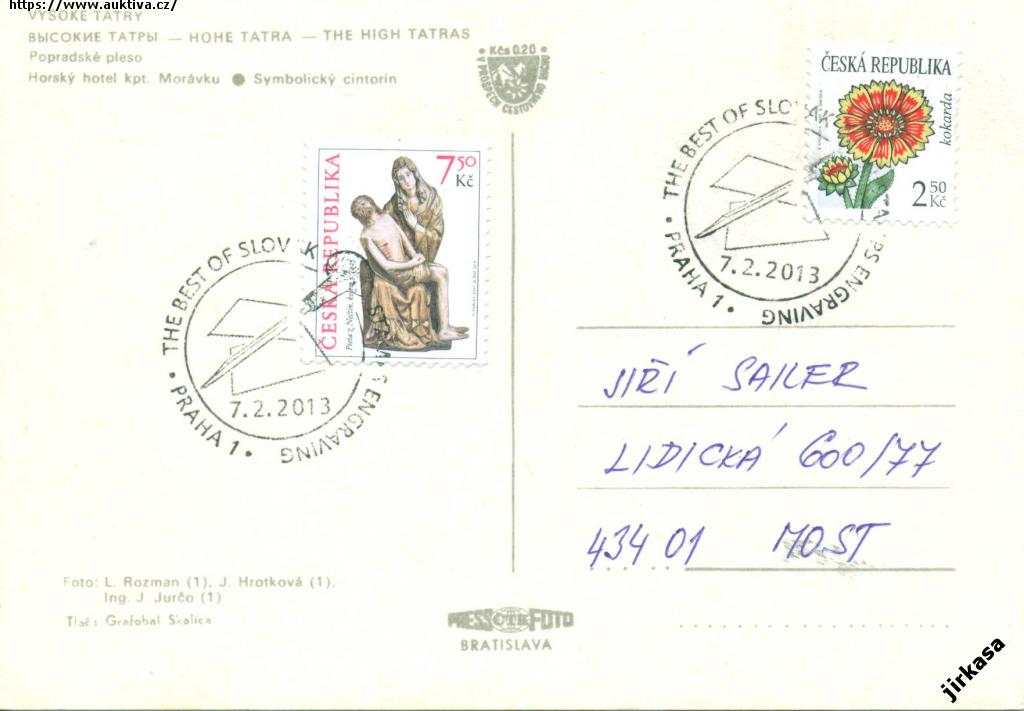 https://www.auktiva.cz/
VYSOKÉ TATRY
ВЫСОКИЕ ТАТРЫ — HOHE TATRA — THE HIGH TATRAS
Popradské pleso
Horský hotel kpt. Morávku ● Symbolický cintorín
Kčs 0.20
V PROSPECH CESTOVNÉHO RUCHU
ČESKÁ REPUBLIKA
kokarda
2 50 Kč
THE BEST OF SLOVAK STAMPS ENGRAVING
7.2.2013
PRAHA 1
7 50 Kč
ČESKÁ REPUBLIKA
THE BEST OF SLOVAK STAMPS ENGRAVING
7.2.2013
PRAHA 1
JIŘÍ SAILER
LIDICKÁ 600/77
434 01 MOST
Foto: L. Rozman (1), J. Hrotková (1),
Ing. J. Jurčo (1)
Tlač: Grafobal Skalica
PRESS ČTK FOTO
BRATISLAVA
jirkasa